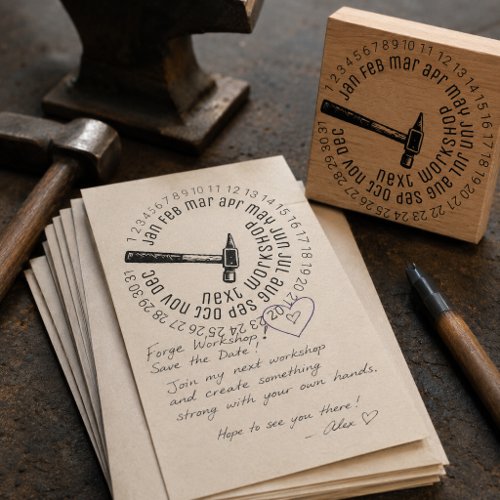 1 2 3 4 5 6 7 8 9 10 11 12 13 14 15 16 17 18 19 20 21 22 23 24 25 26 27 28 29 30 31
JAN FEB MAR APR MAY JUN JUL AUG SEP OCT NOV DEC
NEXT WORKSHOP
1 2 3 4 5 6 7 8 9 10 11 12 13 14 15 16 17 18 19 20 21 22 23 24 25 26 27 28 29 30 31
JAN FEB MAR APR MAY JUN JUL AUG SEP OCT NOV DEC
NEXT WORKSHOP
Forge Workshop:
Save the Date!
Join my next workshop
and create something
strong with your own hands.
Hope to see you there!
– Alex ♡